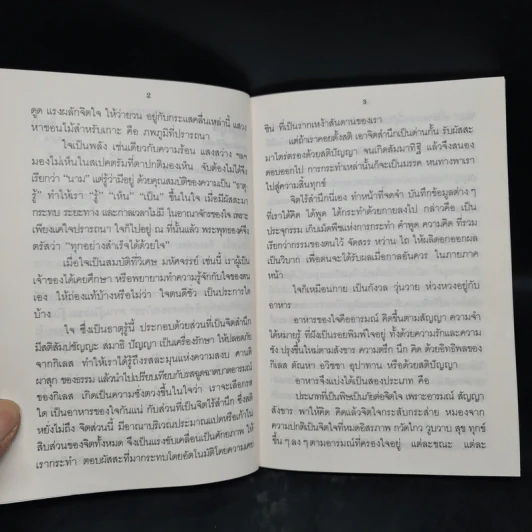 2
ดูด แรงผลักจิตใจ ให้ว่ายวน อยู่กับกระแสคลื่นเหล่านี้ แสวง
หาขอนไม้สำหรับเกาะ คือ ภพภูมิที่ปรารถนา
ใจเป็นพลัง เช่นเดียวกับความร้อน แสงสว่าง
มองไม่เห็นในสเปคตรัมที่ตาปกติมองเห็น จับต้องไม่ได้จึง
เรียกว่า "นาม" แต่รู้ว่ามีอยู่ ด้วยคุณสมบัติของความเป็น "ธาตุ
รู้" ทำให้เรา "รู้" "เห็น" "เป็น" ขึ้นในใจ เมื่อมีผัสสะมา
กระทบ ระยะทาง และกาลเวลาไม่มี ในอาณาจักรของใจ เพราะ
เพียงแค่ใจปรารถนา ใจก็ไปอยู่ ณ ที่นั้นแล้ว พระพุทธองค์จึง
ตรัสว่า "ทุกอย่างสำเร็จได้ด้วยใจ"
เมื่อใจเป็นสมบัติที่วิเศษ มหัศจรรย์ เช่นนี้ เราผู้เป็น
เจ้าของได้เคยศึกษา หรือพยายามทำความรู้จักกับใจของตน
เอง ให้ถ่องแท้บ้างหรือไม่ว่า ใจตนดีชั่ว เป็นประการใด
บ้าง
ใจ ซึ่งเป็นธาตุรู้นี้ ประกอบด้วยส่วนที่เป็นจิตสำนึก
มีสติสัมปชัญญะ สมาธิ ปัญญา เป็นเครื่องรักษา ให้ปลอดภัย
จากกิเลส ทำให้เราได้รู้ถึงรสสะมุนแห่งความสงบ ศานติ
ผาสุก ของธรรม แล้วนำไปเปรียบเทียบกับรสดูดอาตตาอารมณ์
ของกิเลส เกิดเป็นความชั่งตวงขึ้นในใจว่า เราจะเลือกรส
ใด เป็นอาหารของใจกันแน่ กับส่วนที่เป็นจิตไร้สำนึก ซึ่งสติ
หยั่งไม่ถึง จิตส่วนนี้ มีอาณาบริเวณประมาณแปดหรือเก้าใน
สิบส่วนของจิตทั้งหมด จึงเป็นแรงขับเคลื่อนเป็นศักยภาพ ให้
เรากระทำ ตอบผัสสะที่มากระทบโดยอัตโนมัติโดยความเคย
3
ชิน ที่เป็นรากเหง้าสันดานของเรา
แต่ถ้าเราคอยตั้งสติ เอาจิตสำนึกเป็นด่านกั้น รับผัสสะ
มาไตร่ตรองด้วยสติปัญญา จนเกิดสัมมาทิฐิ แล้วจึงสนอง
ตอบออกไป การกระทำเหล่านั้นก็จะเป็นมรรค หนทางพาเรา
ไปสู่ความสิ้นทุกข์
จิตไร้สำนึกนี้เอง ทำหน้าที่จดจำ บันทึกข้อมูลต่างๆ
ที่เราได้คิด ได้พูด ได้กระทำด้วยกายลงไป กล่าวคือ เป็น
ประจุกรรม เก็บเมล็ดพืชแห่งการกระทำ คำพูด ความคิด ที่รวม
เรียกว่ากรรมของตนไว้ จัดสรร หว่าน ไถ ให้ผลิดอกออกผล
เป็นวิบาก เพื่อตนจะได้รับผลเมื่อกาลอันควร ในภายภาค
หน้า
ใจก็เหมือนกาย เป็นกังวล วุ่นวาย ห่วงหวงอยู่กับ
อาหาร
อาหารของใจคืออารมณ์ คิดขึ้นตามสัญญา ความจำ
ได้หมายรู้ ที่ฝังเป็นรอยพิมพ์ใจอยู่ ทั้งด้วยความรักและความ
ชัง ปรุงขึ้นใหม่ตามสังขาร ความตรึก นึก คิด ด้วยอิทธิพลของ
กิเลส ตัณหา อวิชชา อุปาทาน หรือด้วยสติปัญญา
อาหารจึงแบ่งได้เป็นสองประเภท คือ
ประเภทที่เป็นพิษเป็นภัยต่อจิตใจ เพราะอารมณ์ สัญญา
สังขาร พาให้คิด คิดแล้วจิตใจกระสับกระส่าย หมองจาก
ความปกติเป็นจิตใจที่หมดอิสรภาพ กวัดไกว วูบวาบ สุข ทุกข์
ขึ้นๆ ลงๆ ตามอารมณ์ที่ครองใจอยู่ แต่ละขณะ แต่ละ